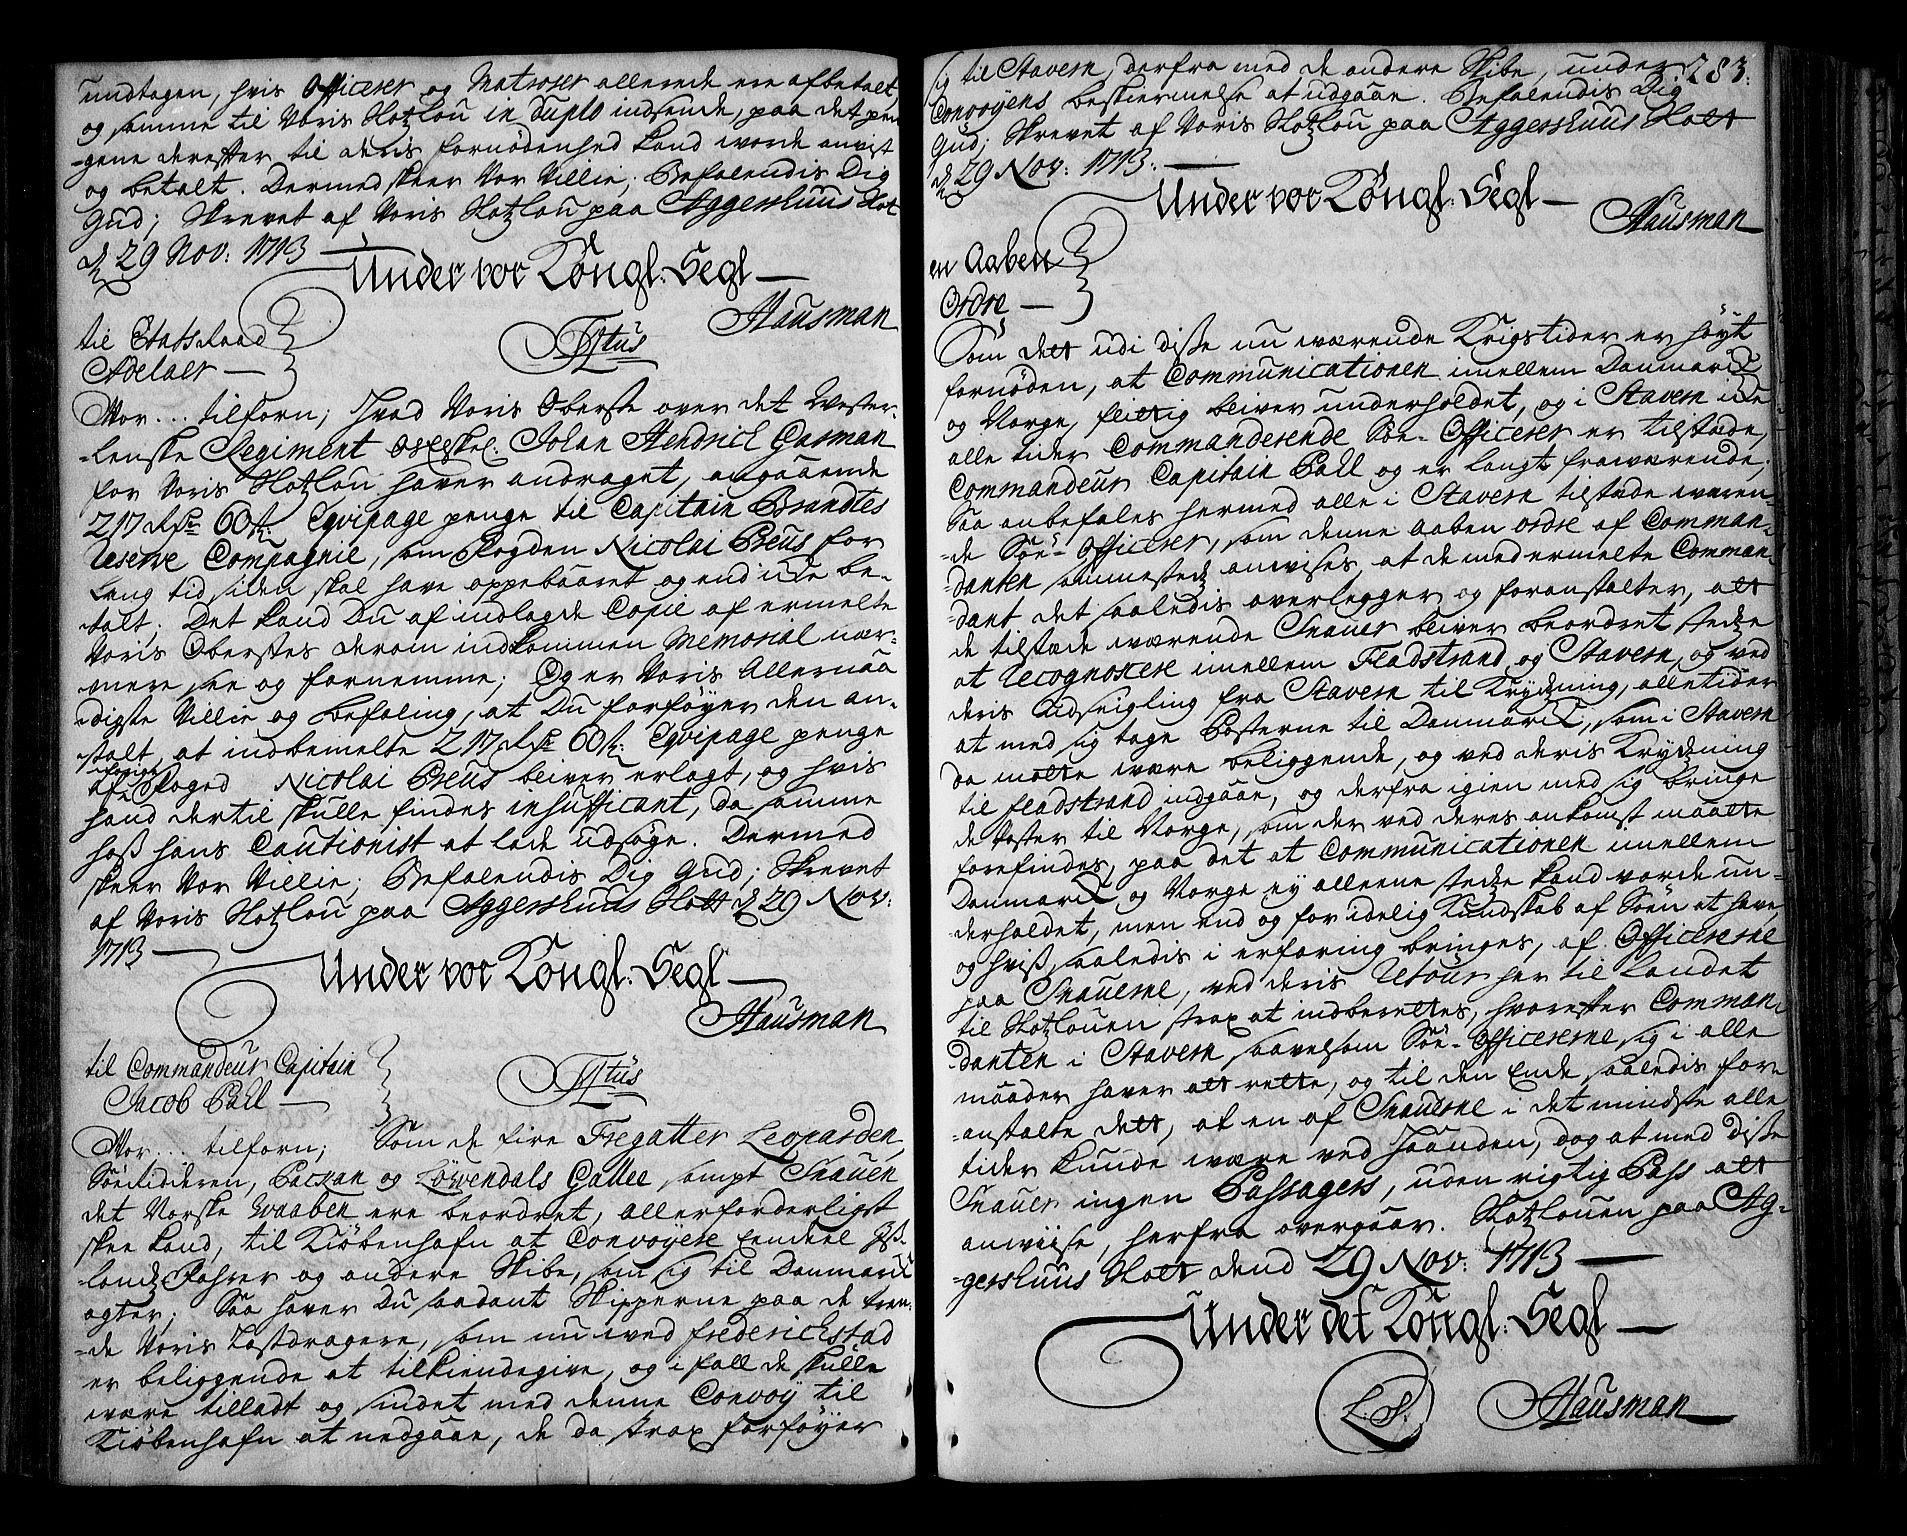 undtagen, hvis Officerer og Matroser allerede ere afbetalt,
og samme til Voris Slotzlou in Duplo indsende, paa det pen-
-gene derefter til deris fornødenhed kand worde anvist
og betalt. Dermed skeer Vor Villie; Befalendis Dig
Gud; Skrevet af Voris Slotzlou paa Aggershuus Slot
d 29 Nov: 1713
Under vor Kongl: Segl
Hausman
til Etatsraad
Adelaer
Titus
Vor... tilforn; Hvad Voris Oberste over det Wester-
-lenske Regiment Johan Hendrich Gasman
for Voris Slotzlou haver andraget, angaaende
217 Rdr 60 s. Eqvipage penge til Capitain Brandtes
Reserve Compagnie, som Fogden Nicolai Preus for
lang tid siden skal have oppebaaret og end icke be-
-talt. Det kand Du af indlagde Copie af ermelte
Voris Oberstes derom indkommen Memorial nær-
-mere see og fornemme; Og er Voris Allernaa
-digste Villie og befaling, at Du forføyer den an-
-stalt, at indbemelte 217 Rdr 60 s: Eqvipage penge
af Foged Nicolai Preus bliver erlagt, og hvis
hand dertil skulle findes insufficant, da samme
hoss hans Cautionist at lade udsøge. Dermed
skeer Vor Villie; Befalendis Dig Gud; Skrevet
af Voris Slotzlou paa Aggershuus Slott d 29 Nov:
1713
Under vor Kongl: Segl
Hausman
til Commandeur Capitain
Jacob Pall
Titus
Vor... tilforn; Som de fire Fregatter Leoparden,
Søeridderen, Packan og Løwendals Gallee sampt Snauen
det Norske Waaben ere beordret, allerforderligst
skee kand, til Kiøbenhafn at Convoyere endeel Iss-
-landz Fahrer og andere Skibe, som sig til Danmarck
agter; Saa haver Du saadant Skipperne paa de tven-
-de Voris Lastdragere, som nu wed Friderichstad
er beliggende at tilkiendegive, og i fall de skulle
være tilladt og sindet med denne Convoy til
Kiøbenhafn at nedgaae, de da strax forføyer
283.
sig til Stavern, derfra med de andere Skibe, under
Convoyens beskiermelse at udgaae. Befalendis Dig
Gud; Skrevet af Voris Slotzlou paa Aggershuus Slott
d 29 Nov: 1713.
Under vor Kongl: Segl
Hausman
en Aaben
Ordre
Som dett udi disse nu wærende Krigstider er høyt
fornøden, at Communicationen imellem Danmarck
og Norge, flittig bliver underholdet, og i Stavern icke
alle tider Commanderende Søe-Officerer er tilstæde,
Commandeur Capitain Pall og er langt fraværende;
Saa anbefales hermed alle i Stavern tilstæde waren-
-de Søe-Officerer, som denne aaben ordre af Comman-
-danten sammestedz anvises, at de med ermelte Comman-
-dant det saaledis overlegger og foranstalter, att
de tilstæde wærende Snauer bliver beordret stedze
at Recognoscere imellem Fladstrand og Stavern, og ved
deris Udseigling fra Stavern til Krydzning, alletider
at med sig tage Posterne til Danmarck, som i Stavern
da motte være beliggende, og ved deris Krydzning
til Fladstrand indgaae, og derfra igien med sig bringe
de Poster til Norge, som der ved deres ankomst maatte
forefindes, paa det at Communicationen imellem
Danmarck og Norge ey alleene stedze kand vorde un-
-derholdet, men end og for idelig Kundskab af Søen at have,
og hvis saaledis i erfaring bringes, af Officererne
paa Snauerne, ved deris Retour her til Landet
til Slotzlouen strax at indberettes, hvorefter Comman-
danten i Stavern saavelsom Søe-Officererne sig i alle
maader haver att rette, og til den Ende saaledis for-
-anstalte dett, at en af Snauerne i det mindste alle
tider kunde være ved Haanden, dog at med disse
Snauer ingen Passagers, uden rigtig Pass att
anviise, herfra overgaar. Slotzlouen paa Ag-
-gershuus Slott dend 29 Nov: 1713
Under det Kongl: Segl
L.S.
Hausman